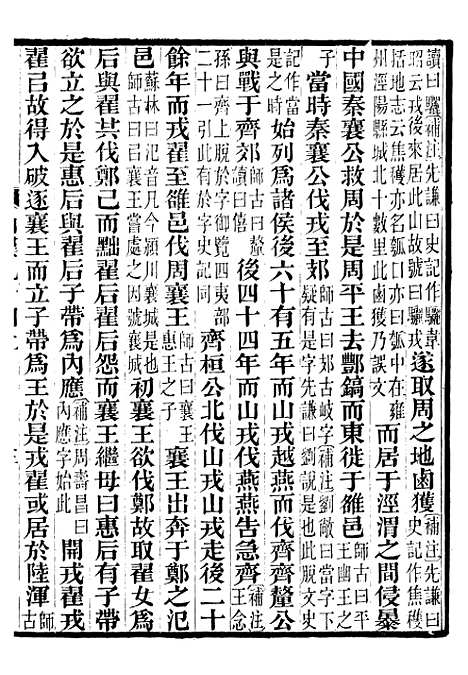 讀曰驪補注先謙曰史記作驪韋
昭云戎後來居此山故號曰驪戎
遂取周之地鹵獲
補注先謙曰
史記作焦穫
括地志云焦穫亦名瓠口亦曰瓠中在雍
州涇陽縣城北十數里此鹵獲乃誤文
而居于涇渭之間侵暴
中國秦襄公救周於是周平王去酆鎬而東徙于雒邑
師古曰平
王幽王之
子
當時秦襄公伐戎至郊
師古曰郊古岐字補注劉敞曰當字下
疑有是字先謙曰劉說是也此脫文史
記作當
是之時
始列爲諸侯後六十有五年而山戎越燕而伐齊齊釐公
與戰于齊郊
師古曰釐
讀曰僖
後四十四年而山戎伐燕燕告急齊
補注
王念
孫曰齊上脫於字御覽四夷部
二十一引此有於字史記同
齊桓公北伐山戎山戎走後二十
餘年而戎翟至雒邑伐周襄王
師古曰襄王
惠王之子
襄王出奔于鄭之氾
邑
蘇林曰氾音凡今潁川襄城是也
師古曰襄王嘗處之因號襄城
初襄王欲伐鄭故取翟女爲
后與翟共伐鄭已而黜翟后翟后怨而襄王繼母曰惠后有子帶
欲立之於是惠后與翟后子帶爲內應
補注周壽昌曰
內應字始此
開戎翟戎
翟㠯故得入破逐襄王而立子帶爲王於是戎翟或居於陸渾
師
古